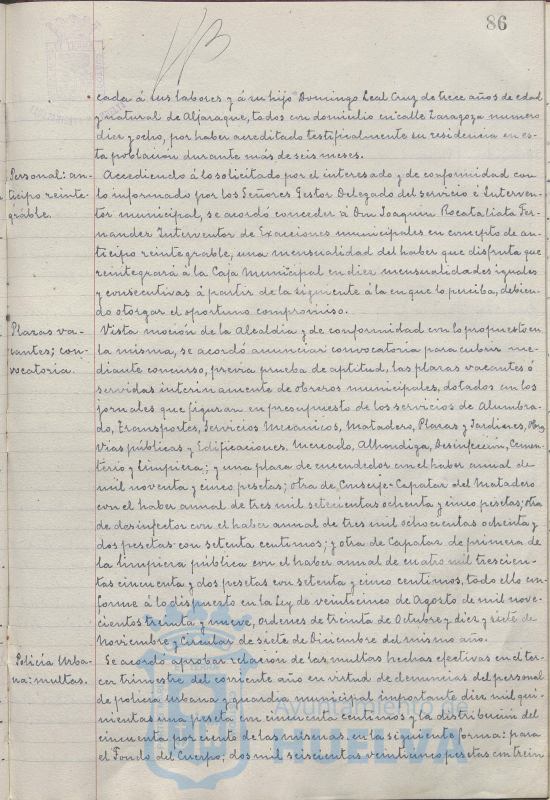 86
cada á sus labores y á su hijo Domingo Leal Cruz de trece años de edad
y natural de Aljaraque, todos con domicilio en calle Zaragoza numero
diez y ocho, por haber acreditado testificalmente su residencia en es-
ta poblacion durante más de seis meses.
Personal: an-
ticipo reinte-
grable.
Accediendo á lo solicitado por el interesado y de conformidad con
lo informado por los Señores Gestor Delegado del servicio é Interven-
tor municipal, se acordó conceder á Don Joaquin Rocataliata Fer-
nandez Interventor de Exacciones municipales en concepto de an-
ticipo reintegrable, una mensualidad del haber que disfruta que
reintegrará á la Caja Municipal en diez mensualidades iguales
y consecutivas á partir de la siguiente á la en que lo perciba, debien-
do otorgar el oportuno compromiso.
Plazas va-
cantes; con-
vocatoria.
Vista moción de la Alcaldia y de conformidad con lo propuesto en
la misma, se acordó anunciar convocatoria para cubrir me-
diante concurso, previa prueba de aptitud, las plazas vacantes ó
servidas interinamente de obreros municipales, dotados en los
jornales que figuran en presupuesto de los servicios de Alumbra-
do, Transportes, Servicios Mecanicos, Matadero, Plazas y Jardines,
Vias públicas y Edificaciones, Mercado, Alhondiga, Desinfección, Cemen-
terio y Limpieza; y una plaza de encendedor con el haber annual de
mil noventa y cinco pesetas; otra de Conserje-Capataz del Matadero
con el haber annual de tres mil setecientas ochenta y cinco pesetas; otra
de desinfector con el haber annual de tres mil ochocientas ochenta y
dos pesetas con setenta centimos; y otra de Capataz de primera de
la limpieza pública con el haber annual de cuatro mil trescien-
tas cincuenta y dos pesetas con setenta y cinco centimos, todo ello con-
forme á lo dispuesto en la Ley de veinticinco de Agosto de mil nove-
cientos treinta y nueve, ordenes de treinta de Octubre y diez y siete de
Noviembre y Circular de siete de Diciembre del mismo año.
Policía Urba-
na: multas.
Se acordó aprobar relación de las multas hechas efectivas en el ter-
cer trimestre del corriente año en virtud de denuncias del personal
de policia urbana y guardia municipal importante diez mil qui-
nientas una peseta con cincuenta centimos y la distribución del
cincuenta por ciento de las mismas, en la siguiente forma: para
el Fondo del Cuerpo; dos mil seiscientas veinticinco pesetas con trein
Ayuntamiento de
HUELVA